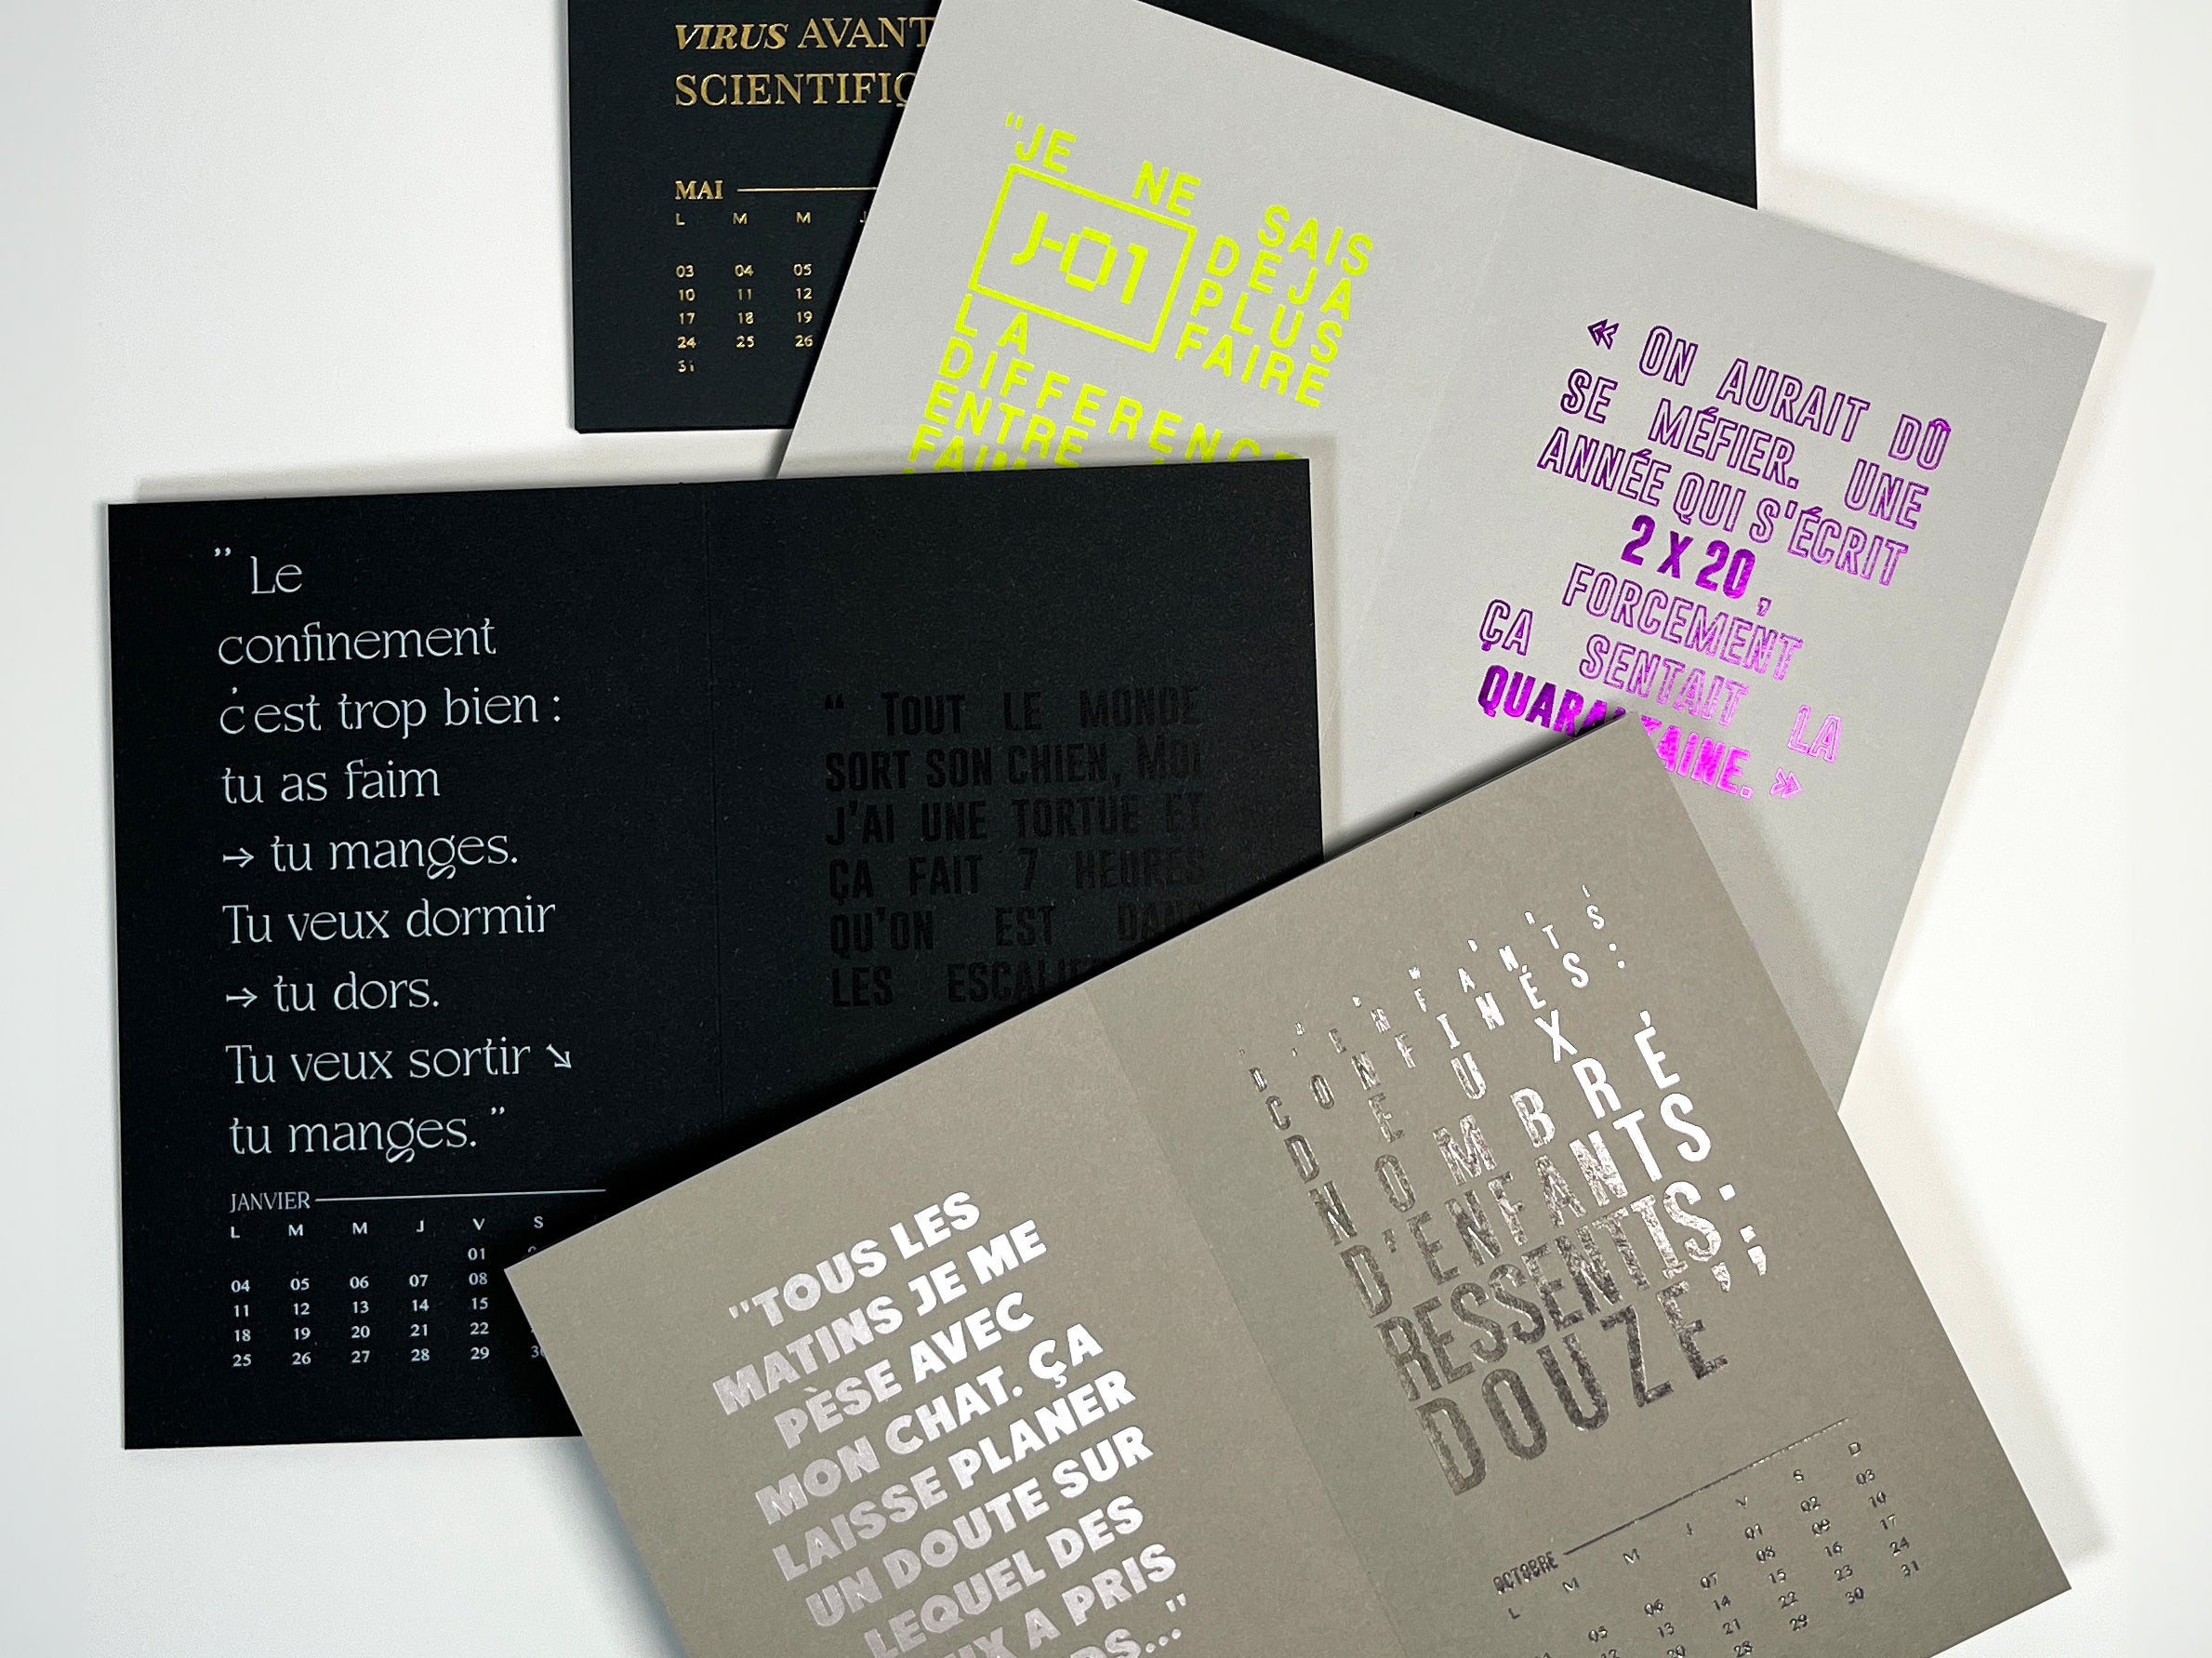 VIRUS AVANT
SCIENTIFIQ
MAI
L M M J
03 04 05
10 11 12
17 18 19
24 25 26
31
"JE NE SAIS
J-01
DEJA
PLUS
FAIRE
LA
DIFFERENCE
ENTRE
FAIM
« ON AURAIT DÛ
SE MÉFIER. UNE
ANNÉE QUI S'ÉCRIT
2 X 20 ,
FORCEMENT
ÇA SENTAIT LA
QUARANTAINE. »
" Le
confinement
c'est trop bien :
tu as faim
→ tu manges.
Tu veux dormir
→ tu dors.
Tu veux sortir ↘
tu manges. "
JANVIER
L M M J V S
01
04 05 06 07 08
11 12 13 14 15
18 19 20 21 22
25 26 27 28 29 30
“ TOUT LE MONDE
SORT SON CHIEN, MOI
J'AI UNE TORTUE ET
ÇA FAIT 7 HEURES
QU'ON EST DANS
LES ESCALIE
"TOUS LES
MATINS JE ME
PÈSE AVEC
MON CHAT. ÇA
LAISSE PLANER
UN DOUTE SUR
LEQUEL DES
UX A PRIS
DS..."
D'ENFANTS
CONFINÉS:
DEUX
NOMBRE
D'ENFANTS
RESSENTIS:
DOUZE"
OCTOBRE
L M M J V S D
01 02 03
05 06 07 08 09 10
13 14 15 16 17
20 21 22 23 24
28 29 30 31